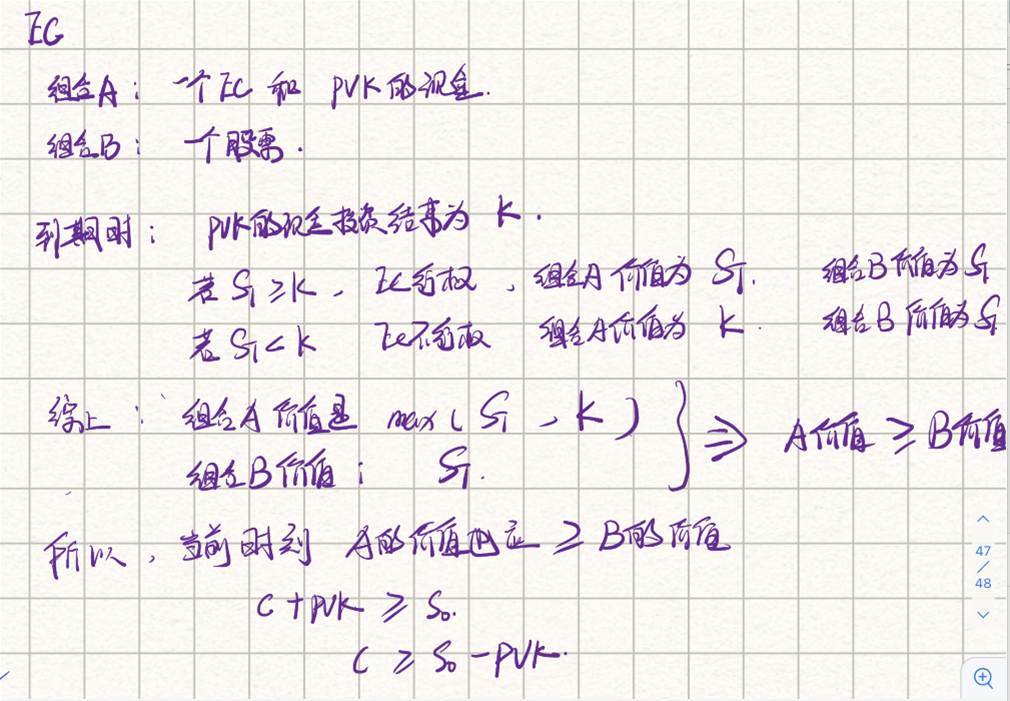 EG
组合A: 一个EC 和 PVK的现金.
组合B: 一个股票.
到期时: PVK的现金投资结果为 K.
若 ST ≥ K, EC行权, 组合A价值为 ST. 组合B价值为 ST
若 ST < K EC不行权 组合A价值为 K. 组合B价值为 ST
综上: 组合A价值是 max(ST, K) } ⇒ A价值 ≥ B价值
组合B价值: ST.
所以, 当前时刻 A的价值也应 ≥ B的价值
C + PVK ≥ S0.
C ≥ S0 - PVK.
47
/
48